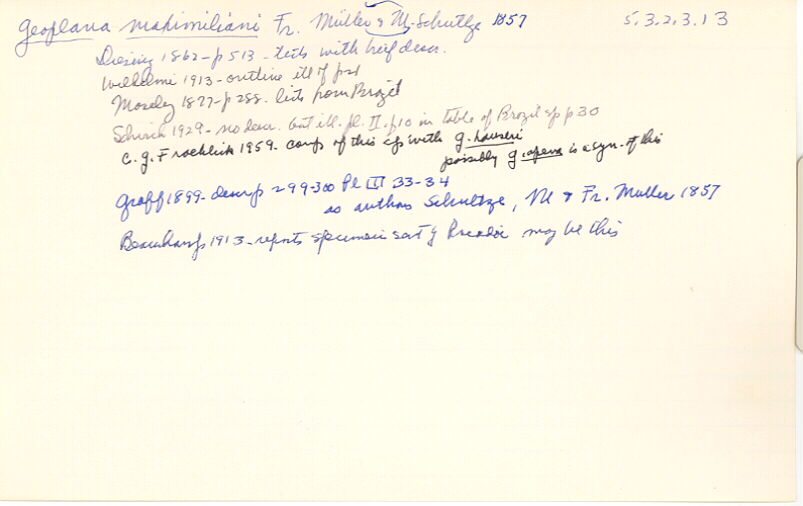 Geoplana maximiliani Fr. Müller & M. Schultze 1857 5.3.2.3.13
Diesing 1862 - p 513 - lists with brief descr.
Wilhelmi 1913 - outline ill of
Moseley 1877 - p 288. lists from Brazil
Schirch 1929 - no descr. but ill. pl. II. f 10 in table of Brazil sp p 30
C. G. Froehlich 1959. comp of this sp with G. hauseri
possibly G. is a syn. of this
Graff 1899 - descr p 299-300 Pl III 33-34
as authors Schultze, M & Fr. Muller 1857
Beauchamp 1913 - reports specimen may be this